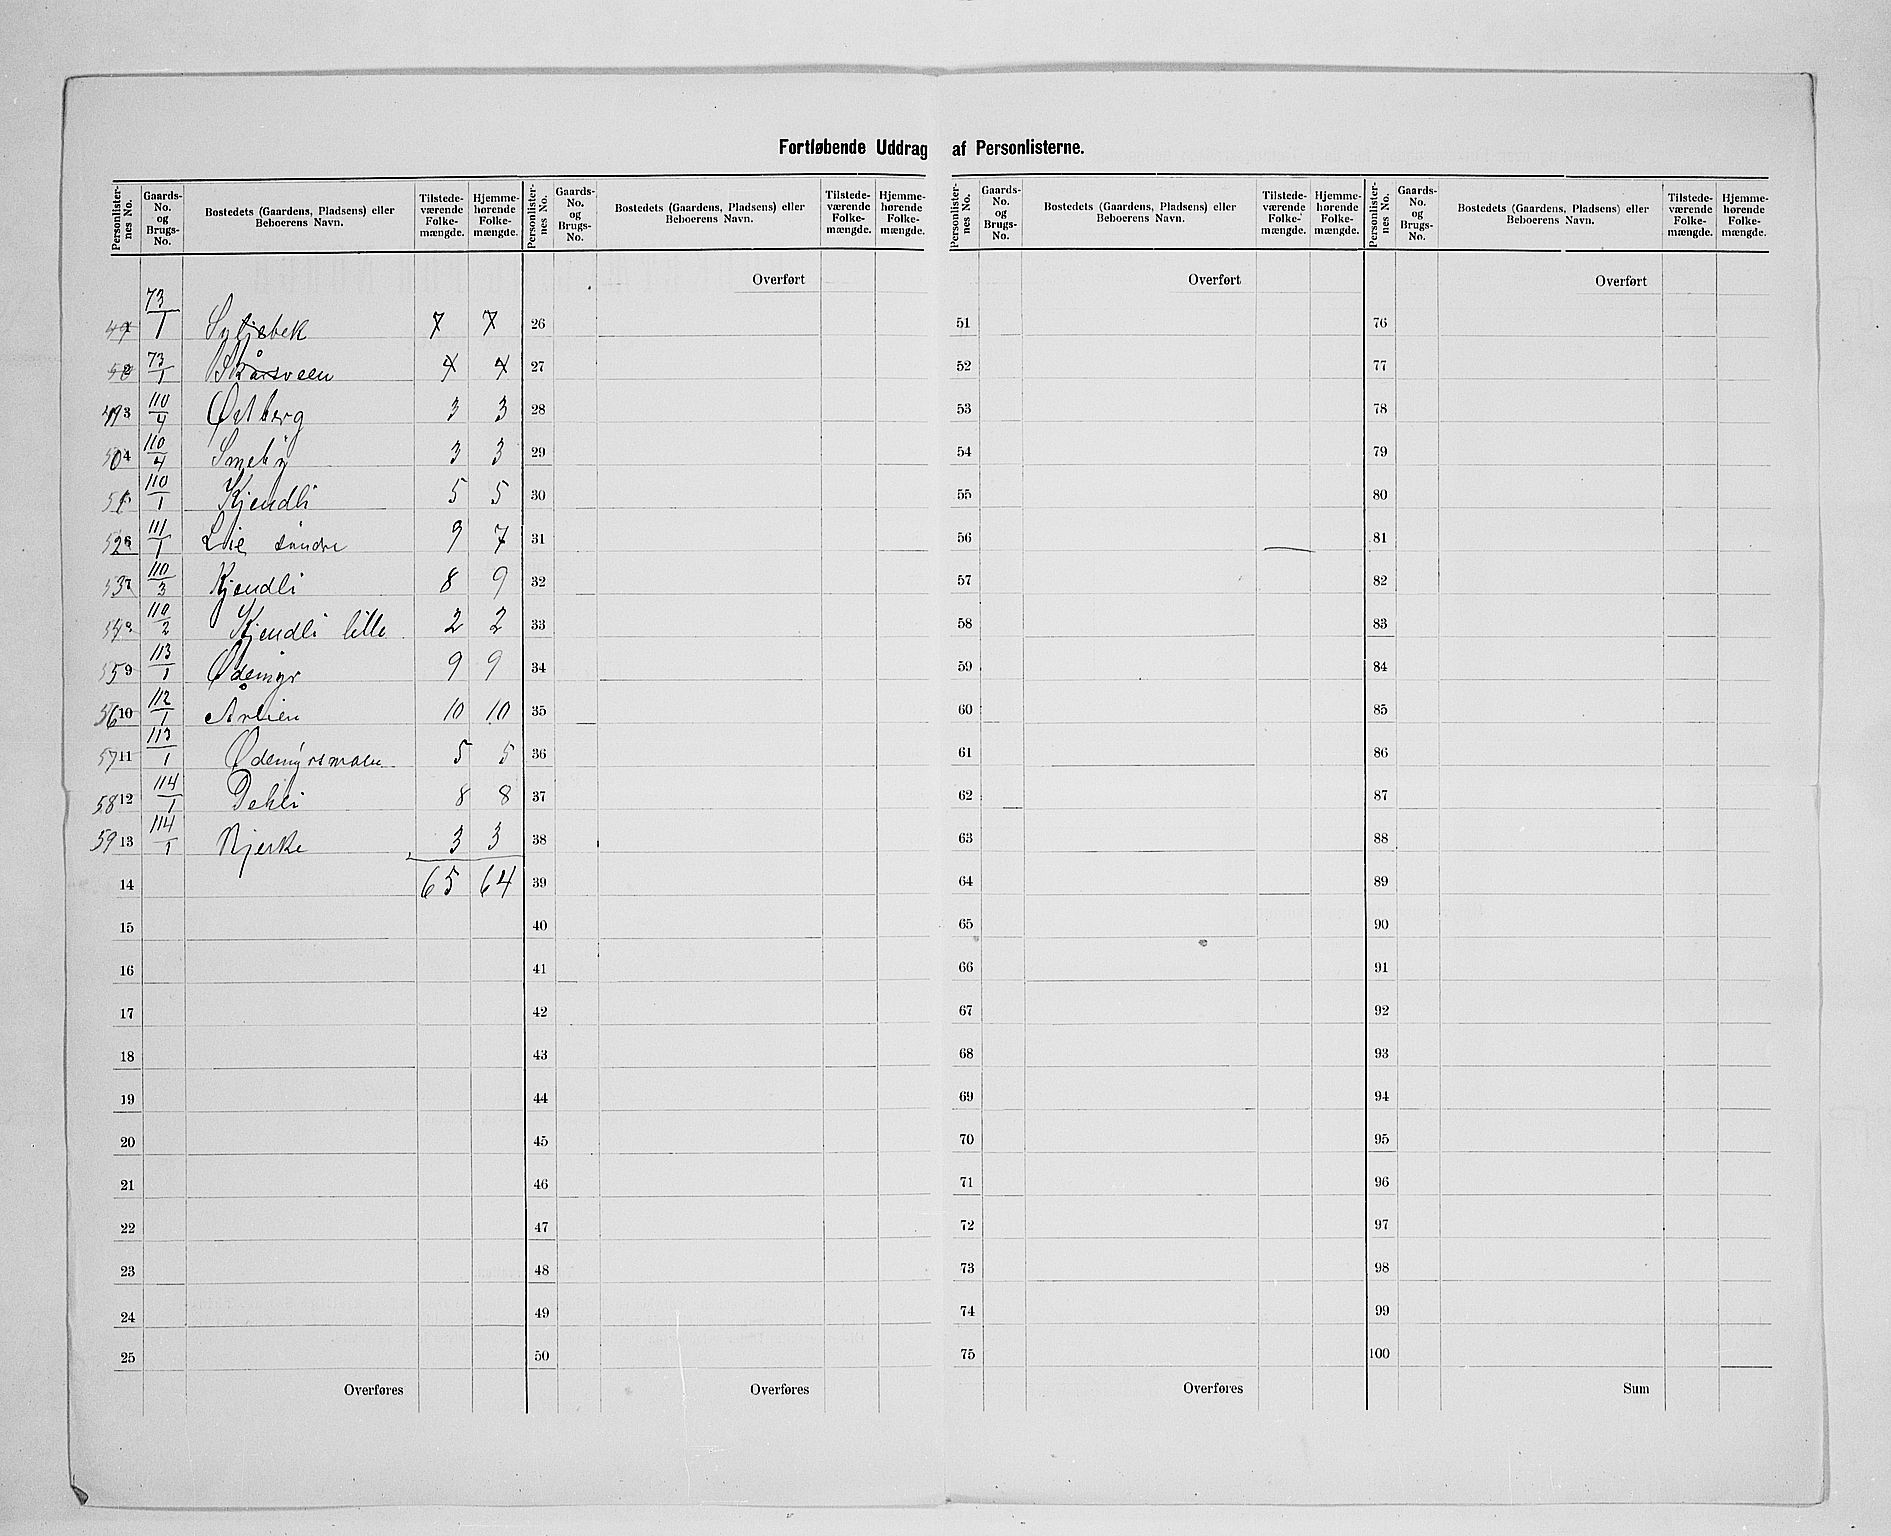 Fortløbende Uddrag af Personlisterne.
Personlisternes No. | Gaards-No. og Brugs-No. | Bostedets (Gaardens, Pladsens) eller Beboerens Navn. | Tilstedeværende Folkemængde. | Hjemmehørende Folkemængde.
73/1 | 7 | 7
73/1 | 4 | 4
49 3 | 110/4 | Østberg | 3 | 3
50 4 | 110/4 | Smeby | 3 | 3
51 | 110/1 | Kjendli | 5 | 5
52 6 | 111/1 | Lie søndre | 9 | 7
53 7 | 110/3 | Kjendli | 8 | 9
54 8 | 110/2 | Kjendli lille | 2 | 2
55 9 | 113/1 | Ødemyr | 9 | 9
56 10 | 112/1 | 10 | 10
57 11 | 113/1 | 5 | 5
58 12 | 114/1 | Dehli | 8 | 8
59 13 | 114/1 | 3 | 3
14 | 65 | 64
15
16
17
18
19
20
21
22
23
24
25
Overføres
Personlisternes No. | Gaards-No. og Brugs-No. | Bostedets (Gaardens, Pladsens) eller Beboerens Navn. | Tilstedeværende Folkemængde. | Hjemmehørende Folkemængde.
Overført
26
27
28
29
30
31
32
33
34
35
36
37
38
39
40
41
42
43
44
45
46
47
48
49
50
Overføres
Personlisternes No. | Gaards-No. og Brugs-No. | Bostedets (Gaardens, Pladsens) eller Beboerens Navn. | Tilstedeværende Folkemængde. | Hjemmehørende Folkemængde.
Overført
51
52
53
54
55
56
57
58
59
60
61
62
63
64
65
66
67
68
69
70
71
72
73
74
75
Overføres
Personlisternes No. | Gaards-No. og Brugs-No. | Bostedets (Gaardens, Pladsens) eller Beboerens Navn. | Tilstedeværende Folkemængde. | Hjemmehørende Folkemængde.
Overført
76
77
78
79
80
81
82
83
84
85
86
87
88
89
90
91
92
93
94
95
96
97
98
99
100
Sum